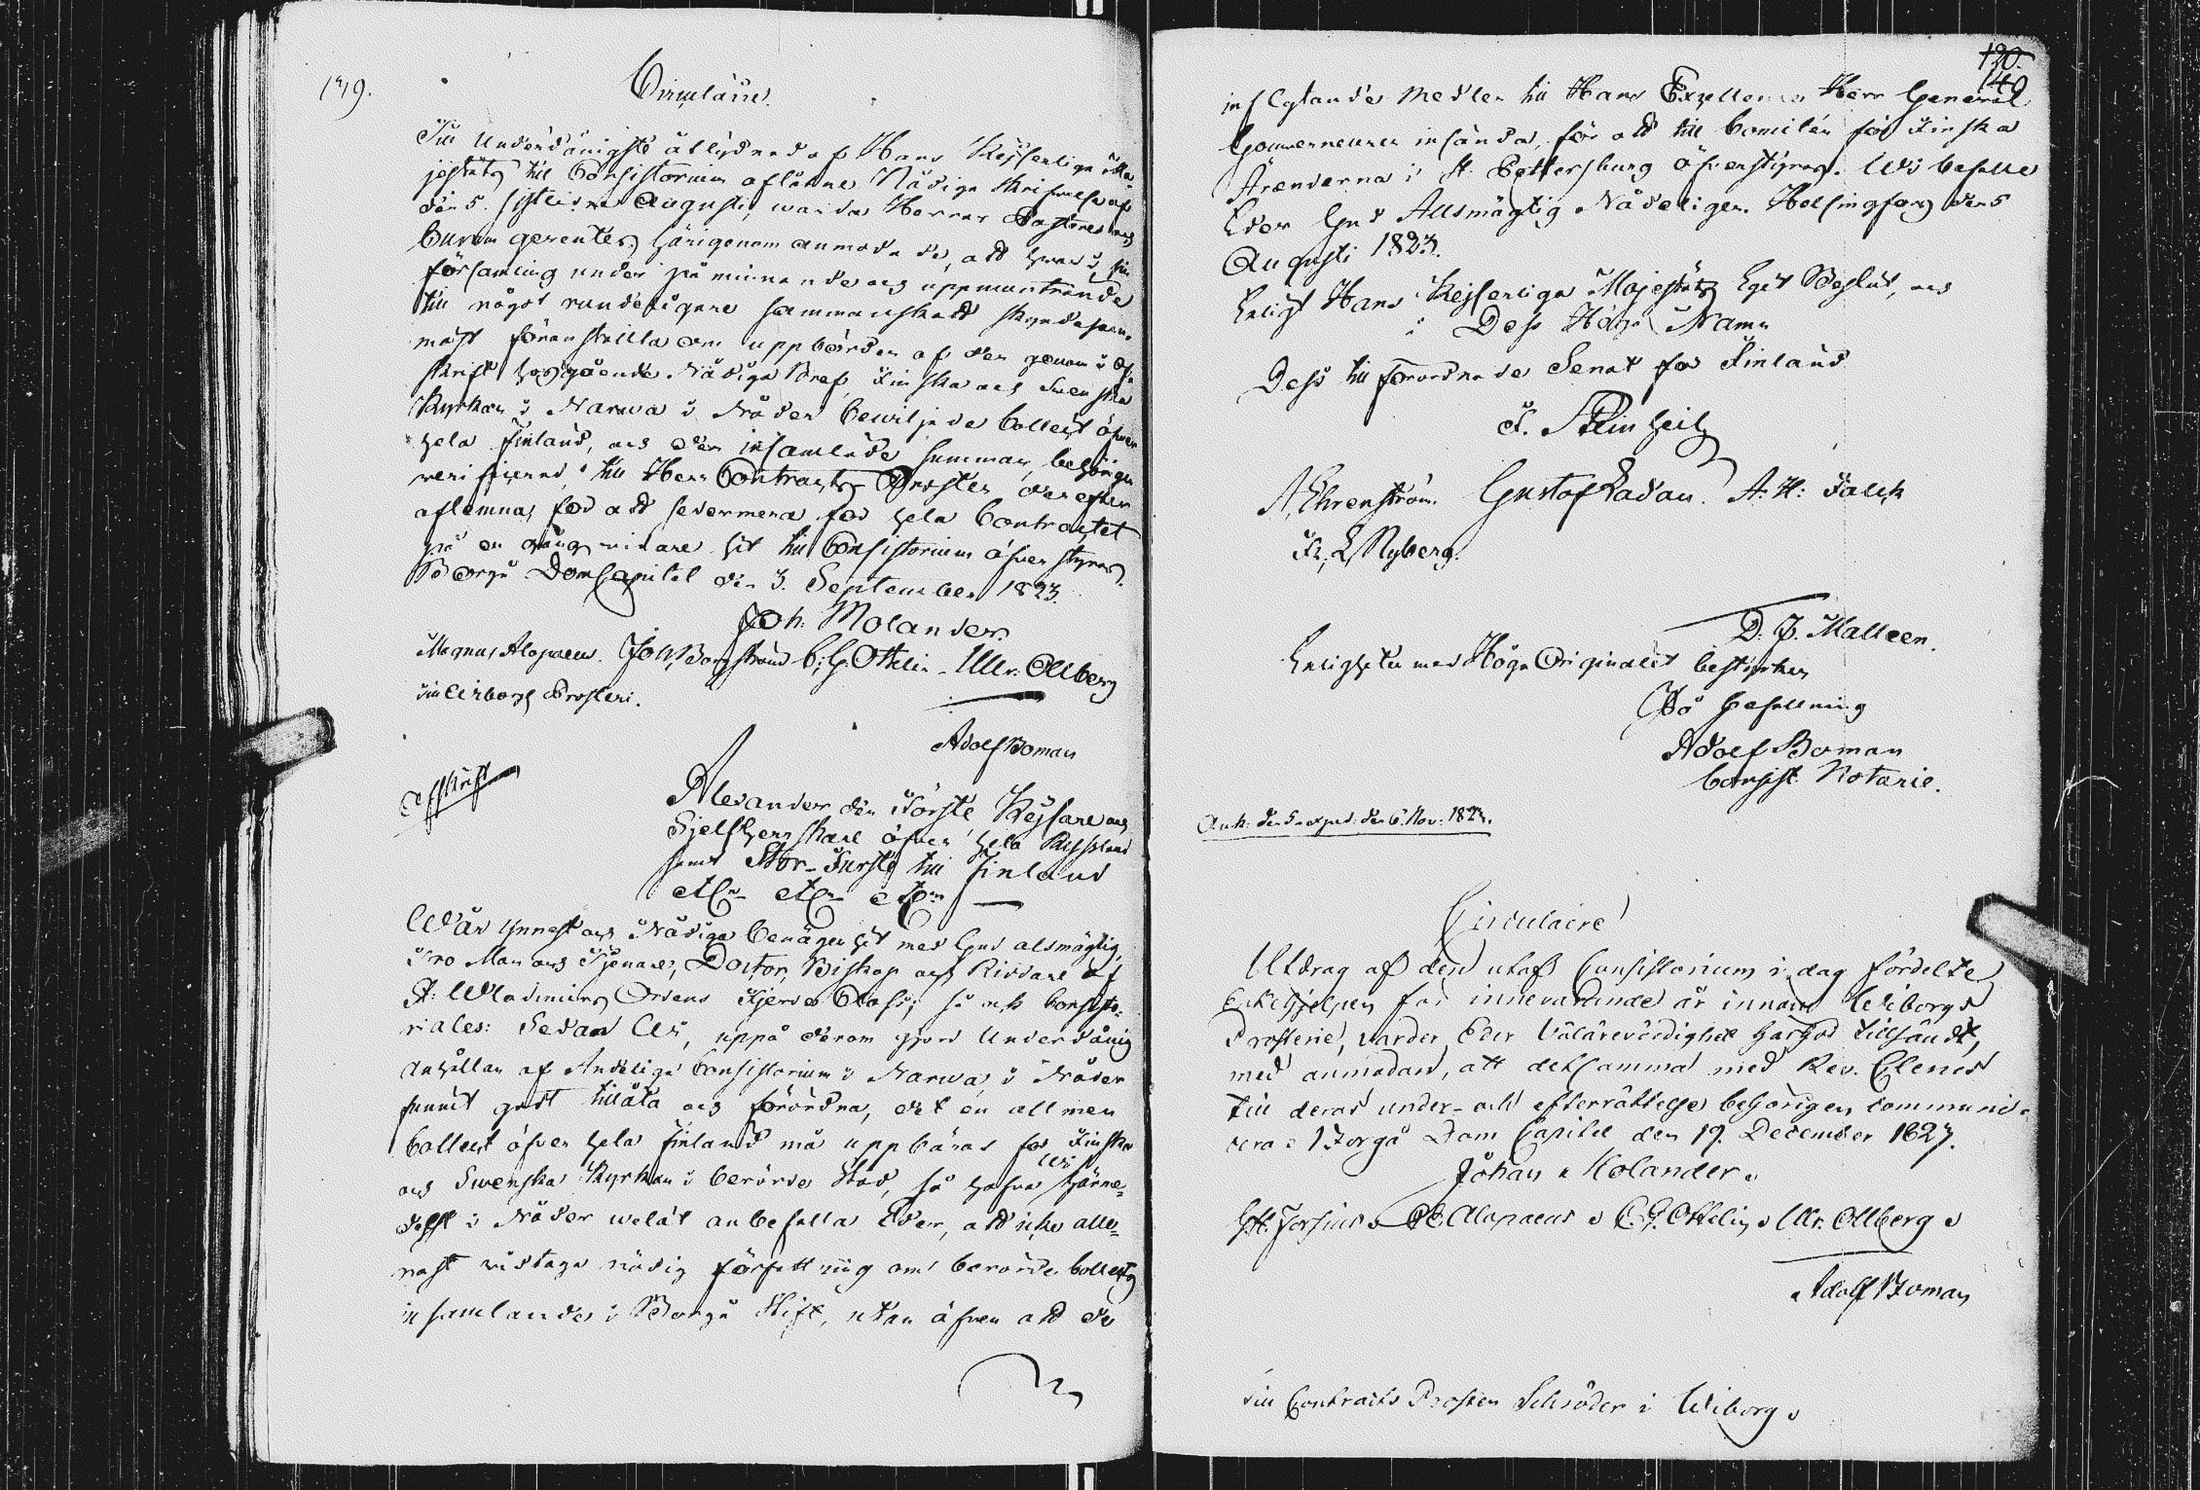 139.
Circulaire.
Till Underdånigste åtlydnad af Hans Kejserliga Ma-
jestäts till Consistorium aflåtne Nådiga skrifvelse af
den 5. sistledne Augusti, warda Herrar Pastores och
Curam gerentes härigenom anmodade, att hvar i sin
församling under påminnande och uppmuntrande
till något rundeligare sammanskott skyndesam-
mast föranstalta om uppbörden af den genom i af-
skrift hosgående Nådiga Bref, Finska och Swenska
Kyrkan i Narwa i Nåder bewiljade Collect öfver
hela Finland, och den insamlade summan, behörigen
verificerad, till Herr Contracts Prosten derefter
aflemna, för att sedermera för hela Contractet
på en gång vidare hit till Consistorium öfverstyras.
Borgå DomCapitel den 3. September 1823.
Joh. Molander.
Magnus Alopaeus. Joh. Borgström C. G. Ottelin. Ulr. Ollberg
till Wiborgs Prosteri.
Adolf Boman
Afskrift
Alexander den Förste Kejsare och
Sjelfherrskare öfver hela Ryssland
samt Stor-Furste till Finland
etc. etc. etc.
Wår ynnest och Nådiga benägenhet med Gud alsmägtig,
Tro Man och Tjenare, Doctor, Biskop och Riddare af
St. Wladimirs Ordens Fjerde Class, så ock Consisto-
riales: Sedan Wi, uppå derom gjord Underdånig
anhållan af Andeliga Consistorium i Narwa, i Nåder
funnit godt tillåta och förordna, det en allmän
Collect öfver hela Finland må uppbäras för Finska
och Swenska Kyrkan i berörde Stad, så hafve Wi härme-
delst i Nåder welat anbefalla Eder, att icke alle-
nast vidtaga nödig författning om berörde Collects
insamlande i Borgå Stift, utan äfven att de
130.
140
insflytande Medlen till Hans Excellence Herr General
Gouverneuren insända, för att till Comitén för Finska
Ärenderna i St. Pettersburg öfverstyras. Wi befalle
Eder Gud Allsmägtig Nådeligen. Helsingfors den 5
Augusti 1823.
Enligt Hans Kejserliga Majestäts Eget Beslut, och
i Dess Höga Namn
Dess tillförordnade Senat för Finland
F. Steinheil
A. Ehrenström. Gustaf Ladau. A. H: Falck
Fr. L. Nyberg.
D. J. Malleen.
Enligheten med Höga Originalet bestyrker
På befallning
Adolf Boman
Consist. Notarie.
Ank: den 5. exped: den 6. Nov: 1823.
Circulaire
Utdrag af den utaf Consistorium i dag fördelte
Enkehjelpen för innevarande år innom Wiborgs
Prosterie, varder Eder Välärevördighet härhos tillsändt,
med anmodan, att detsamma med Rev. Clerus
till deras under- och efterrättelse behörigen communi-
cera. Borgå Dom Capitel den 19. December 1827.
Johan Molander.
M. Alopaeus. C. G. Ottelin. Ulr. Ollberg.
Adolf Boman
Till Contracts Prosten Schröder i Wiborg.